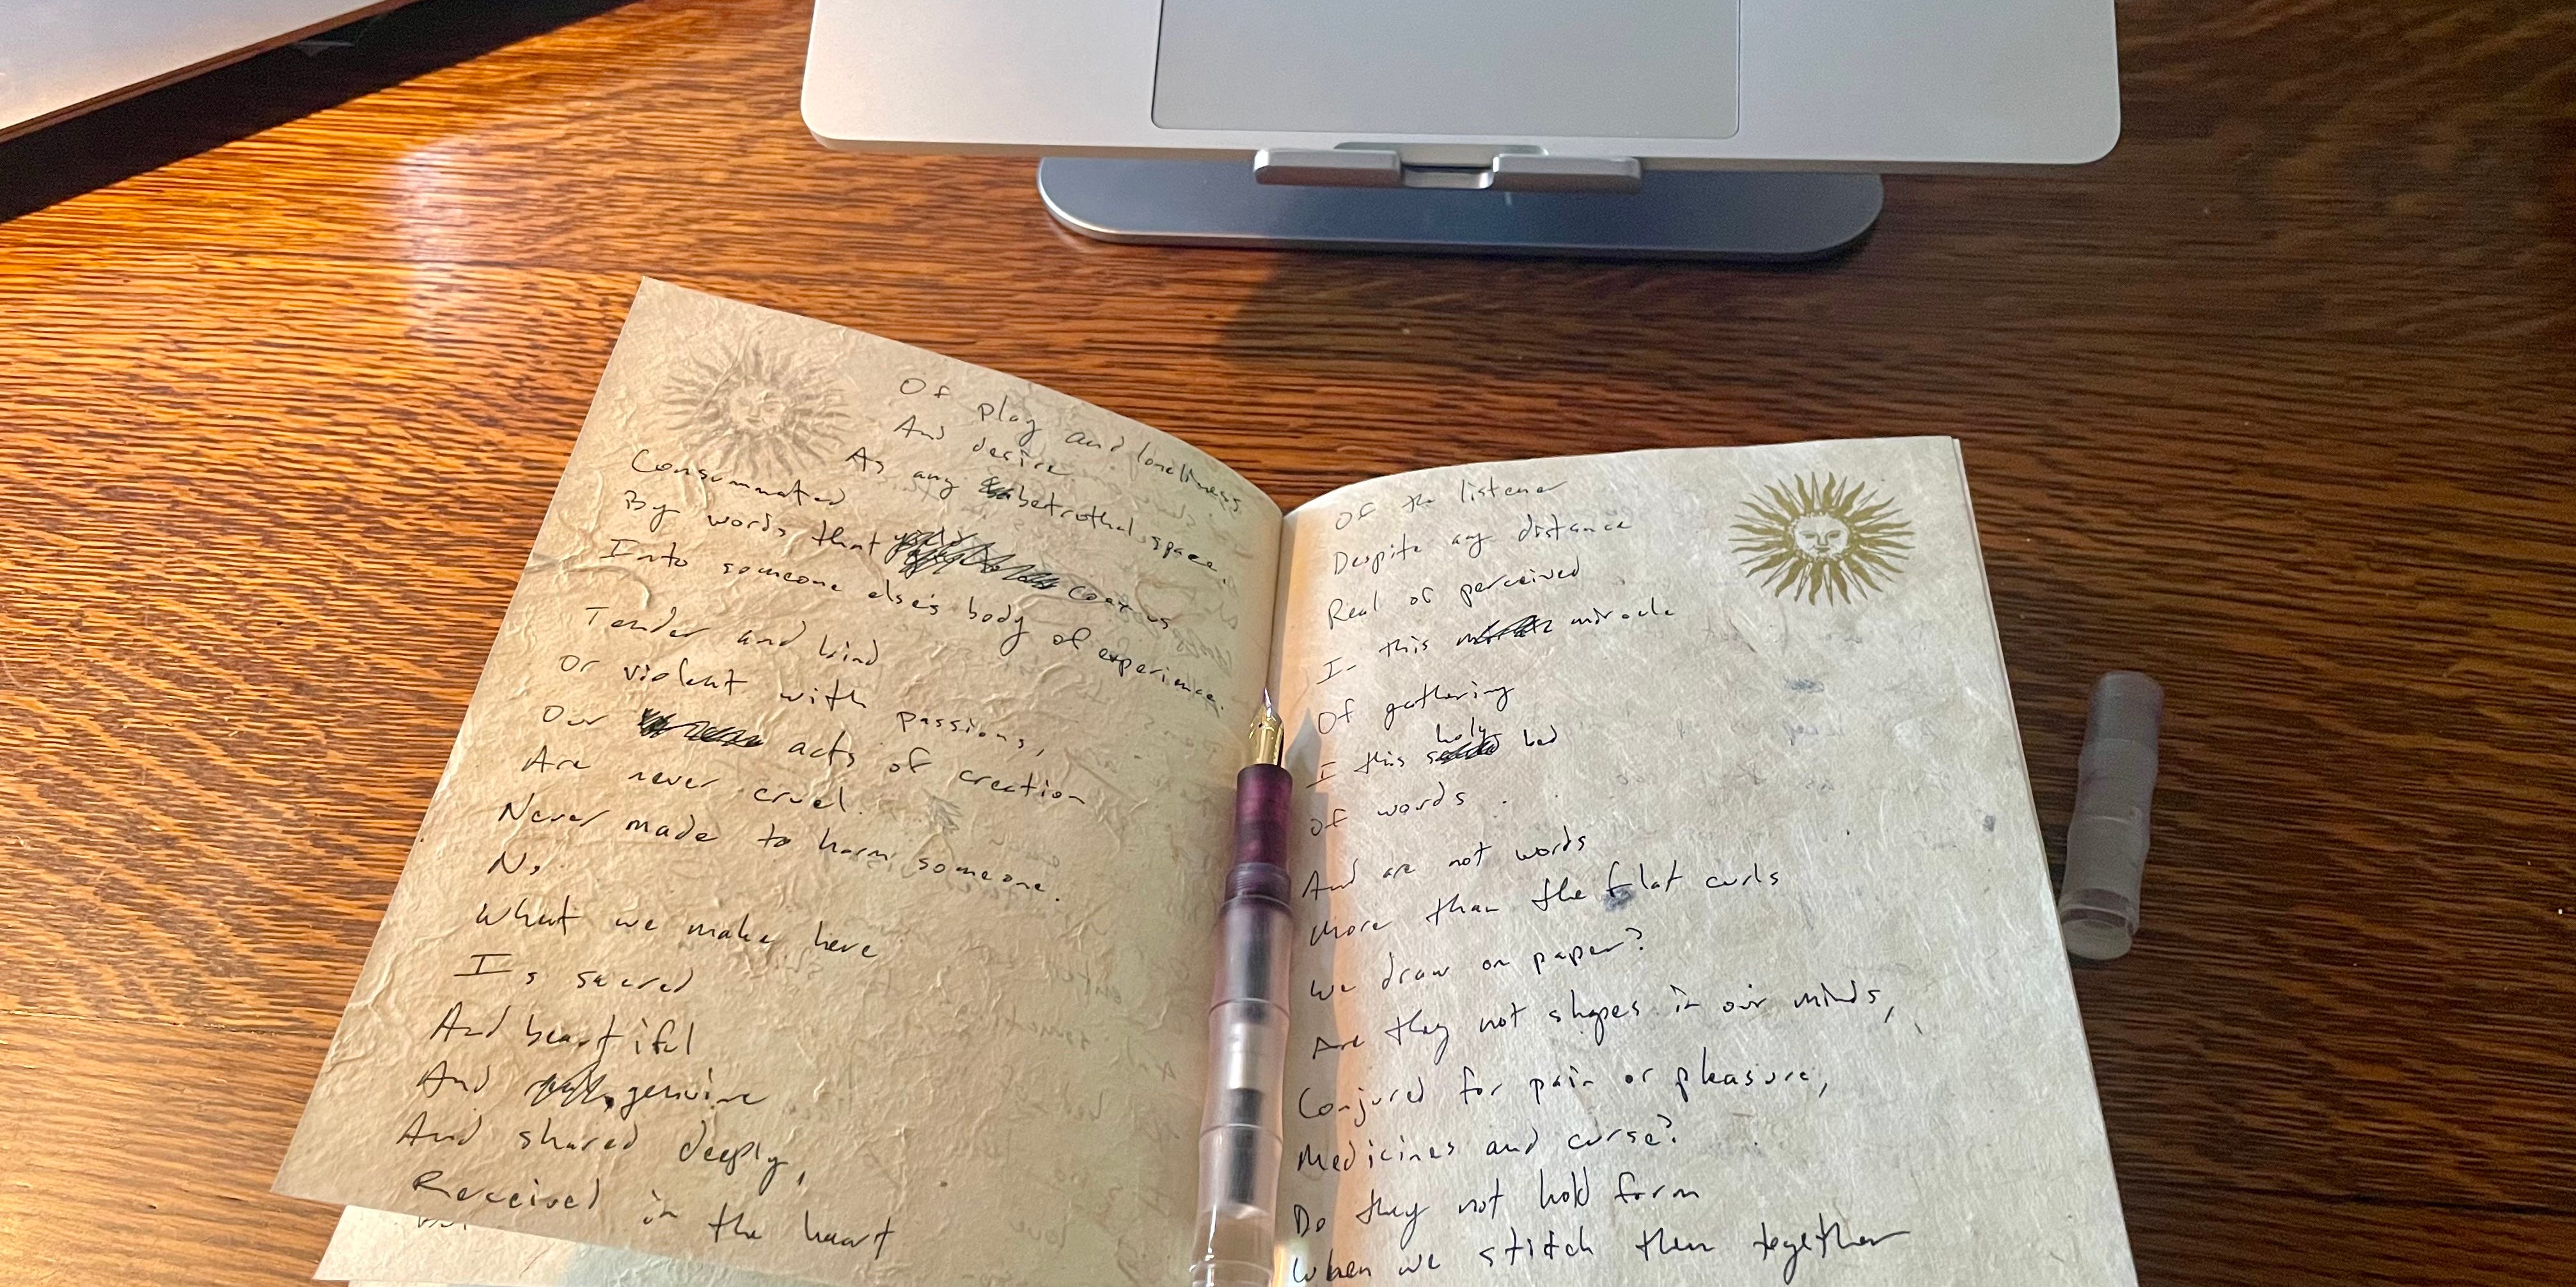 Of play and loneliness
And desire
As any betrothal space.
Consummated
By words that coax us
Into someone else's body of experience.
Tender and kind
Or violent with passions,
Our acts of creation
Are never cruel.
Never made to harm someone.
No,
What we make here
Is sacred
And beautiful
And genuine
And shared deeply,
Received in the heart
Of the listener
Despite any distance
Real or perceived
In this miracle
Of gathering
I this holy bed
Of words.
And are not words
More than the flat curls
We draw on paper?
Are they not shapes in our minds,
Conjured for pain or pleasure,
Medicines and curse?
Do they not hold form
When we stitch them together